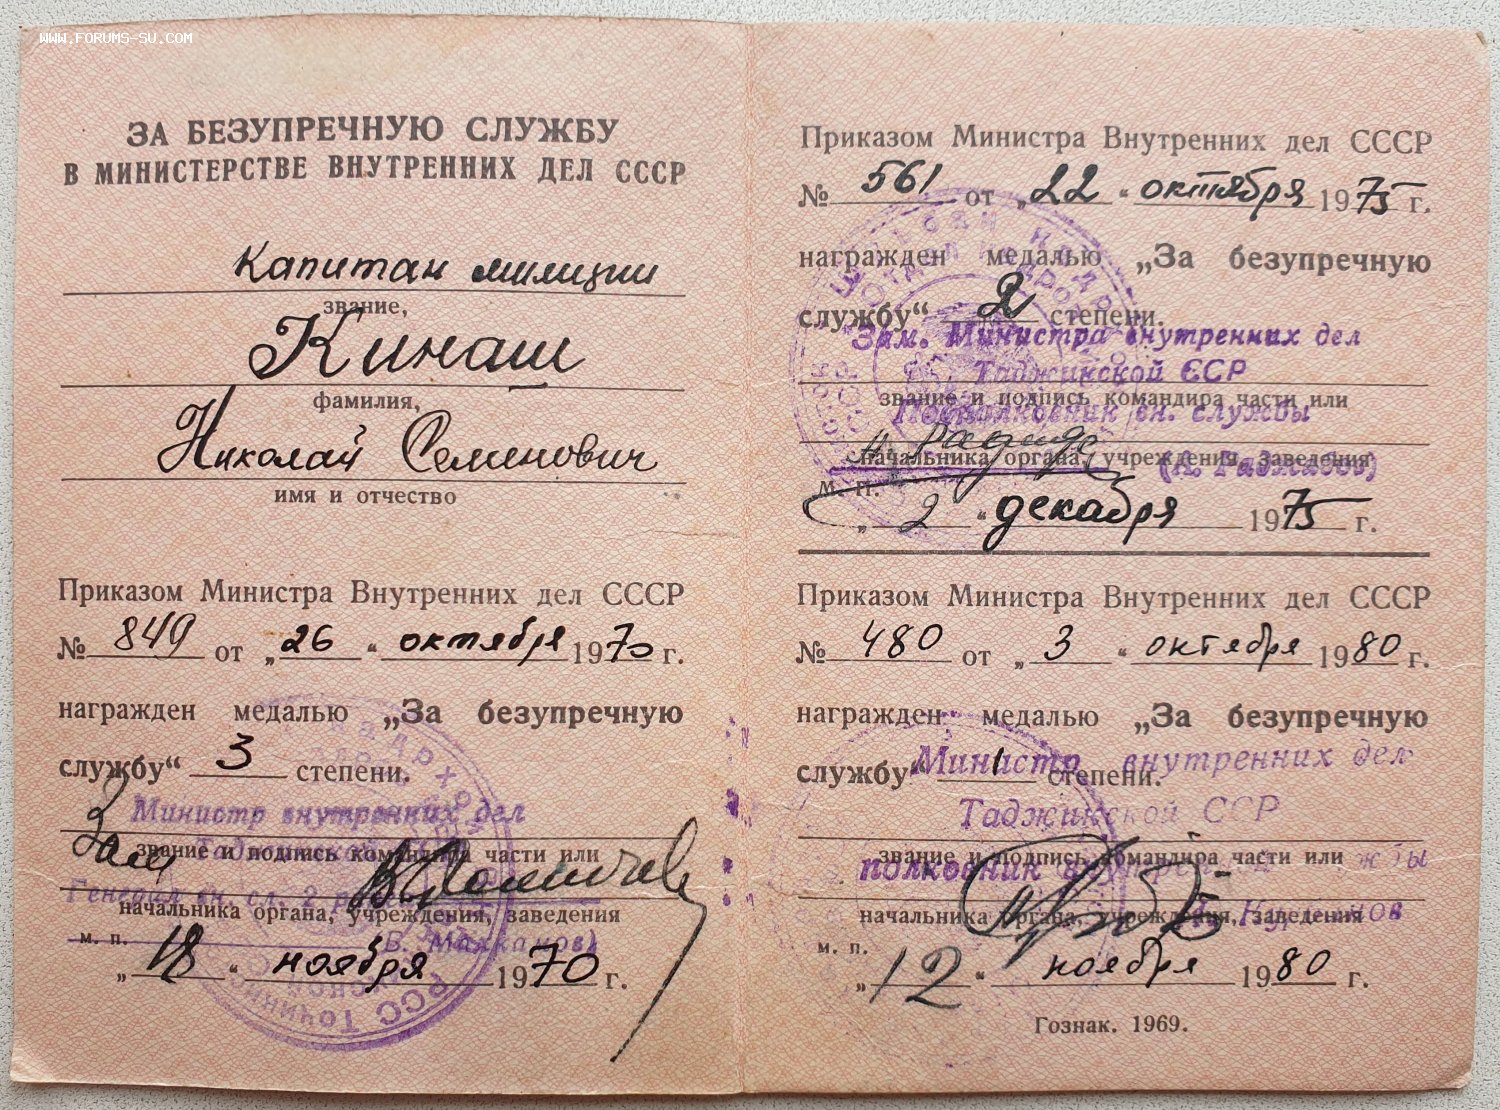 WWW.FORUMS-SU.COM
ЗА БЕЗУПРЕЧНУЮ СЛУЖБУ
В МИНИСТЕРСТВЕ ВНУТРЕННИХ ДЕЛ СССР
Капитан милиции
звание,
Кинаш
фамилия,
Николай Семенович
имя и отчество
Приказом Министра Внутренних дел СССР
№ 849 от „26“ октября 1970 г.
награжден медалью „За безупречную
службу“ 3 степени.
Министр внутренних дел
Зам
Таджикской ССР
звание и подпись командира части или
Генерал вн. сл. 2
начальника органа, учреждения, заведения
м. п.
„18“ ноября 1970 г.
Приказом Министра Внутренних дел СССР
№ 561 от „22“ октября 1975 г.
награжден медалью „За безупречную
службу“ 2 степени.
Зам. Министра внутренних дел
Таджикской ССР
звание и подпись командира части или
Подполковник вн. службы
начальника органа, учреждения, заведения
м. п.
„2“ декабря 1975 г.
Приказом Министра Внутренних дел СССР
№ 480 от „3“ октября 1980 г.
награжден медалью „За безупречную
службу“ 1 степени.
Министр внутренних дел
Таджикской ССР
звание и подпись командира части или
полковник
начальника органа, учреждения, заведения
м. п.
„12“ ноября 1980 г.
Гознак. 1969.